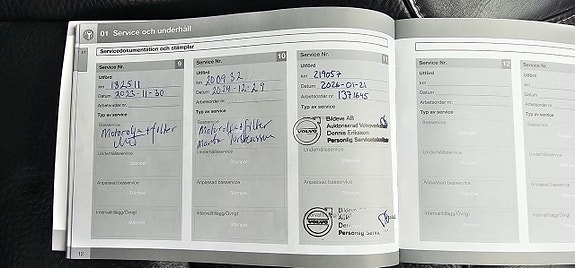 01 Service och underhåll
Servicedokumentation och stämplar
Service Nr. 9
Utförd
km 182511
Datum 2023-11-30
Arbetsorder nr.
Typ av service
Basservice
Motorolja+filter
Underhållsservice
Stämpel
Anpassad basservice
Stämpel
Intervalltillägg/Övrigt
Stämpel
Service Nr. 10
Utförd
km 200932
Datum 2024-12-29
Arbetsorder nr.
Typ av service
Basservice
Motorolja+filter
Martin
Underhållsservice
Stämpel
Anpassad basservice
Stämpel
Intervalltillägg/Övrigt
Stämpel
Service Nr. 11
Utförd
km 219057
Datum 2026-01-21
Arbetsorder nr. 1371645
Typ av service
VOLVO
Bildeve AB
Auktoriserad Volvoverkstad
Dennis Eriksson
Personlig Servicetekniker
Underhållsservice
Stämpel
Anpassad basservice
Stämpel
VOLVO
Bildeve
Personlig Servi
12
Service Nr. 12
Utförd
km
Datum
Arbetsorder nr.
Typ av service
Basservice
Stämpel
Underhållsservice
Stämpel
Anpassad basservice
Stämpel
Intervalltillägg/Övrigt
Stämpel